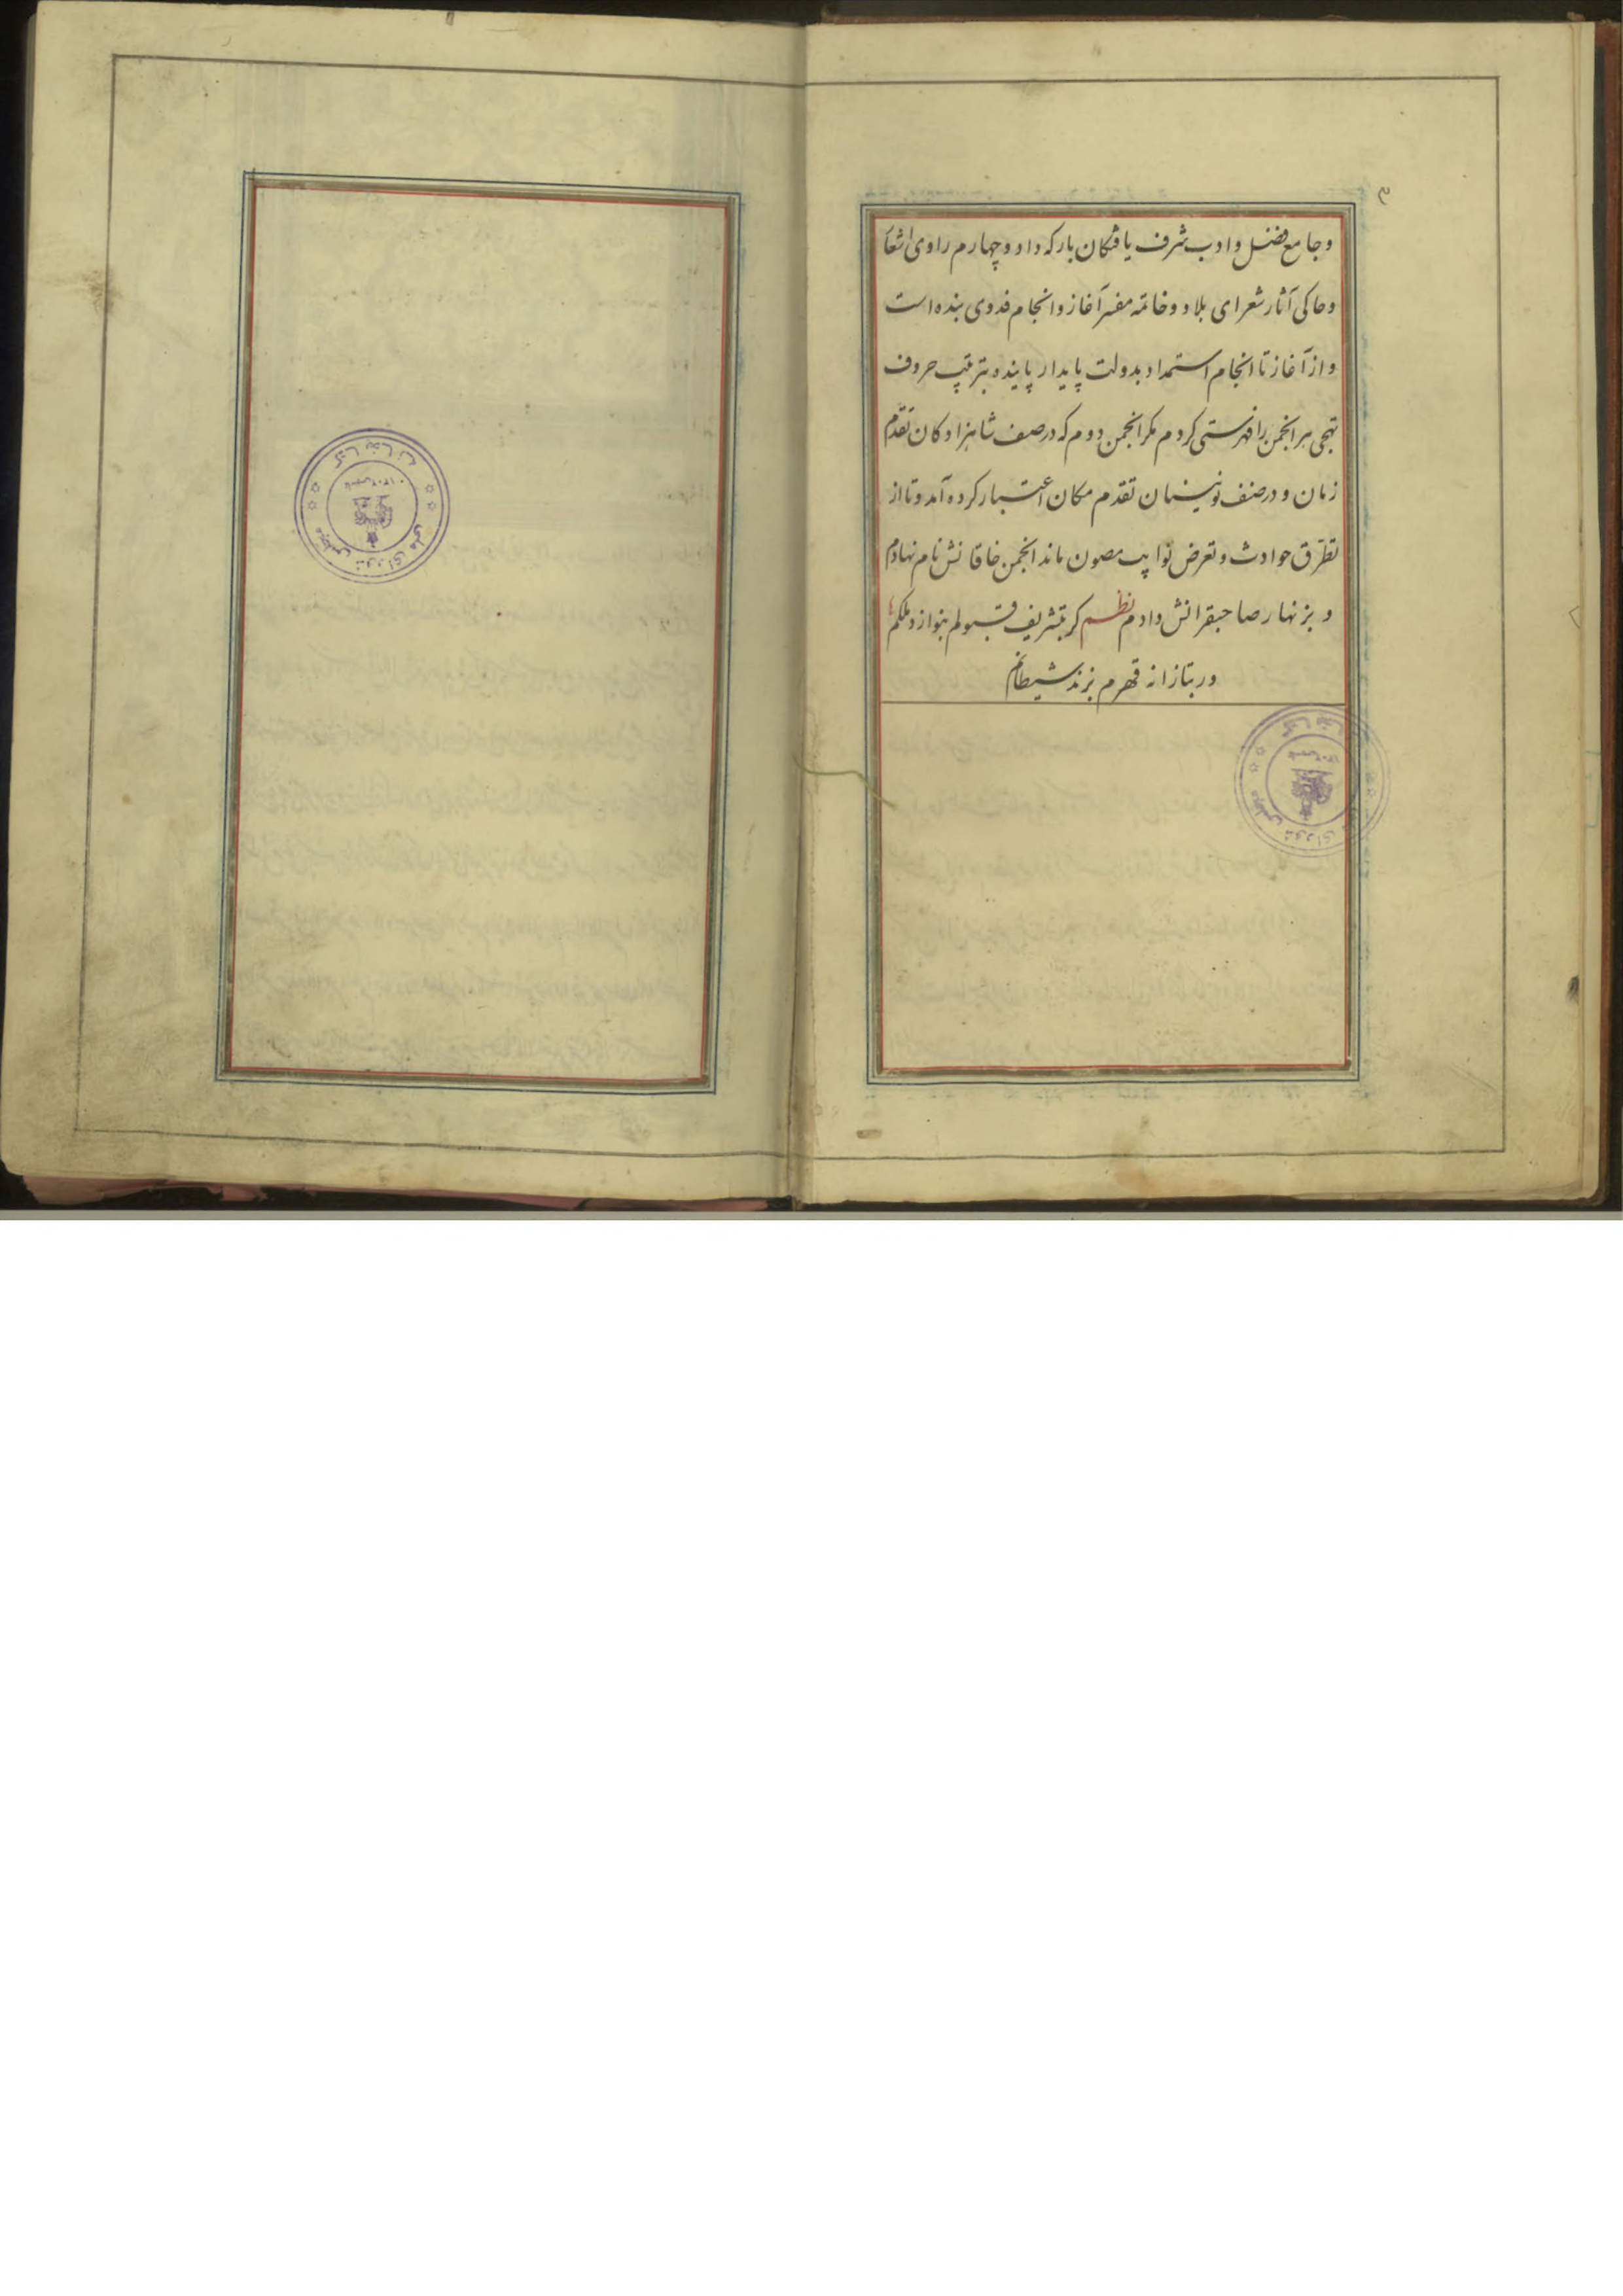 ۳
وجامع فضل وادب شرف یافتکان بارکه داد وچهارم راوی اشعا
وحاکی آثار شعرای بلاد وخاتمه مفسر آغاز وانجام فدوی بنده است
واز آغاز تا انجام استمداد بدولت پایدار پاینده بترتیب حروف
تهجی هر انجمن را فهرستی کردم مکر انجمن دوم که در صف شاهزادکان تقدم
زمان و در صنف نوئینان تقدم مکان اعتبار کرده آمد و تا از
تطرّق حوادث و تعرض نوایب مصون ماند انجمن خاقانش نام نهادم
و بزنهار صاحبقرانش دادم نظم کر بتشریف قبولم بنوازد ملکم
ور بتازانه قهرم بزند شیطانم
کتابخانه مجلس شورای ملی
کتابخانه مجلس شورای ملی